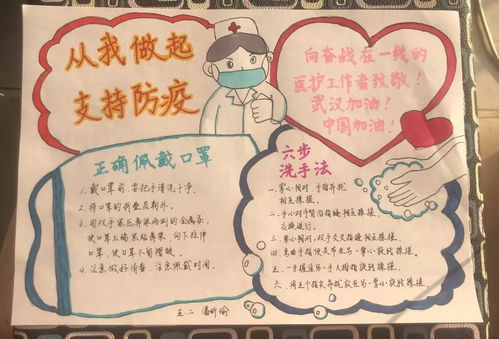 从我做起
支持防疫
向奋战在一线的
医护工作者致敬!
武汉加油!
中国加油!
正确佩戴口罩
1. 戴口罩前要把手清洗干净。
2. 将口罩的折叠层朝外。
3. 用双手紧压鼻梁两侧的金属条,
使口罩上端紧贴鼻梁,向下拉伸
口罩,使口罩不留褶皱。
4. 注意做好消毒,注意佩戴时间。
六步
洗手法
一、掌心相对,手指并拢
相互揉搓。
二、手心对手背沿指缝相互揉搓,
交换进行。
三、掌心相对,双手交叉指缝相互揉搓。
四、弯曲手指使关节在另一掌心旋转揉搓。
五、一手握住另一手大拇指旋转揉搓。
六、将五个指尖并拢放在另一掌心旋转揉搓。
五.二